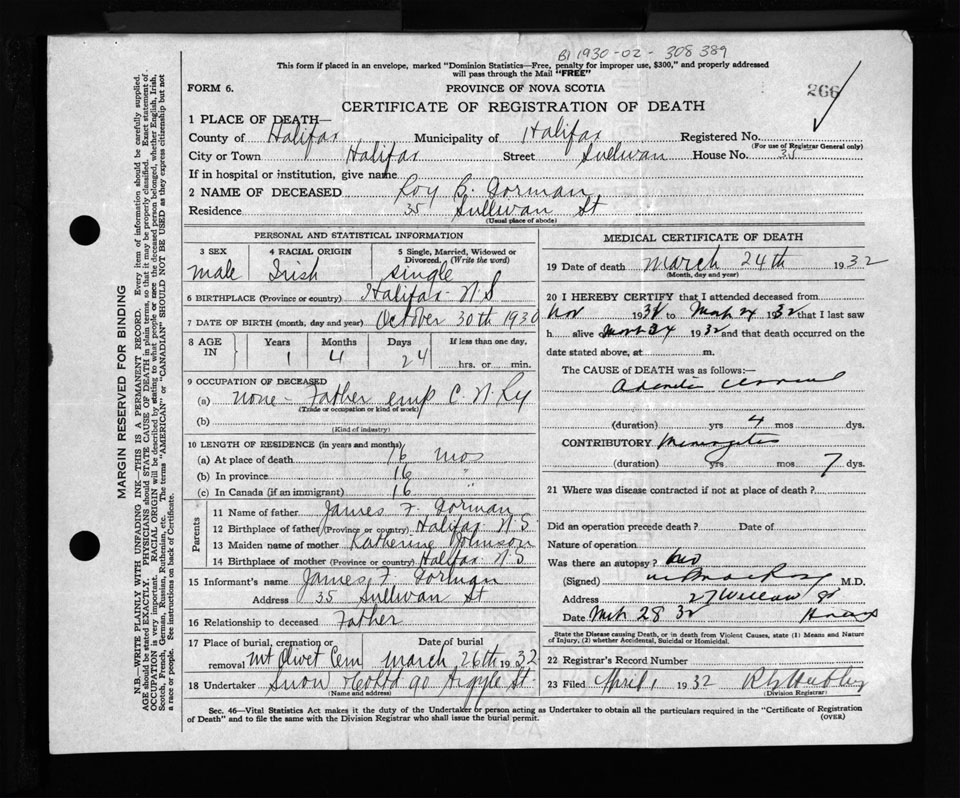 B1 1930-02-308389
This form if placed in an envelope, marked "Dominion Statistics—Free, penalty for improper use, $300," and properly addressed
will pass through the Mail "FREE"
FORM 6.
PROVINCE OF NOVA SCOTIA
266
CERTIFICATE OF REGISTRATION OF DEATH
1 PLACE OF DEATH—
County of Halifax Municipality of Halifax Registered No.
(For use of Registrar General only)
City or Town Halifax Street Sullivan House No. 35
If in hospital or institution, give name
2 NAME OF DECEASED Roy B. Gorman
Residence 35 Sullivan St
(Usual place of abode)
PERSONAL AND STATISTICAL INFORMATION
3 SEX male
4 RACIAL ORIGIN Irish
5 Single, Married, Widowed or Divorced. (Write the word) single
6 BIRTHPLACE (Province or country) Halifax N.S
7 DATE OF BIRTH (month, day and year) October 30th 1930
8 AGE IN Years 1 Months 4 Days 24 If less than one day, hrs. or min.
9 OCCUPATION OF DECEASED
(a) none - Father emp C. N. Ry
(Trade or occupation or kind of work)
(b)
(Kind of industry)
10 LENGTH OF RESIDENCE (in years and months)
(a) At place of death 16 mos
(b) In province 16 "
(c) In Canada (if an immigrant) 16 "
Parents
11 Name of father James F. Gorman
12 Birthplace of father (Province or country) Halifax N.S.
13 Maiden name of mother Katherine Johnson
14 Birthplace of mother (Province or country) Halifax N S
15 Informant's name James F. Gorman
Address 35 Sullivan St
16 Relationship to deceased Father
17 Place of burial, cremation or removal Mt Olivet Cem Date of burial March 26th 1932
18 Undertaker Snow & Co Ltd 90 Argyle St.
(Name and address)
MEDICAL CERTIFICATE OF DEATH
19 Date of death March 24th 1932
(Month, day and year)
20 I HEREBY CERTIFY that I attended deceased from
Nov 1931 to Mar 24 1932 that I last saw
h alive on Mar 24 1932 and that death occurred on the
date stated above, at m.
The CAUSE OF DEATH was as follows:—
Adenitis cervical
(duration) yrs 4 mos dys.
CONTRIBUTORY Meningitis
(duration) yrs mos 7 dys.
21 Where was disease contracted if not at place of death?
Did an operation precede death? Date of
Nature of operation
Was there an autopsy? No
(Signed) M.D.
Address 27 Willow St
Date Mch 28 32 Hfax
State the Disease causing Death, or in death from Violent Causes, state (1) Means and Nature
of Injury, (2) whether Accidental, Suicidal or Homicidal.
22 Registrar's Record Number
23 Filed April 1 1932
(Division Registrar)
Sec. 46—Vital Statistics Act makes it the duty of the Undertaker or person acting as Undertaker to obtain all the particulars required in the "Certificate of Registration
of Death" and to file the same with the Division Registrar who shall issue the burial permit.
(OVER)
MARGIN RESERVED FOR BINDING
N.B.—WRITE PLAINLY WITH UNFADING INK—THIS IS A PERMANENT RECORD. Every item of information should be carefully supplied.
AGE should be stated EXACTLY. PHYSICIANS should STATE CAUSE OF DEATH in plain terms, so that it may be properly classified. Exact statement of
OCCUPATION is very important. RACIAL ORIGIN will be described by stating to what people or race the deceased person belonged, whether English, Irish,
Scotch, French, German, Russian, Ruthenian, etc. The terms "AMERICAN" or "CANADIAN" SHOULD NOT BE USED as they express citizenship but not
a race or people. See instructions on back of Certificate.